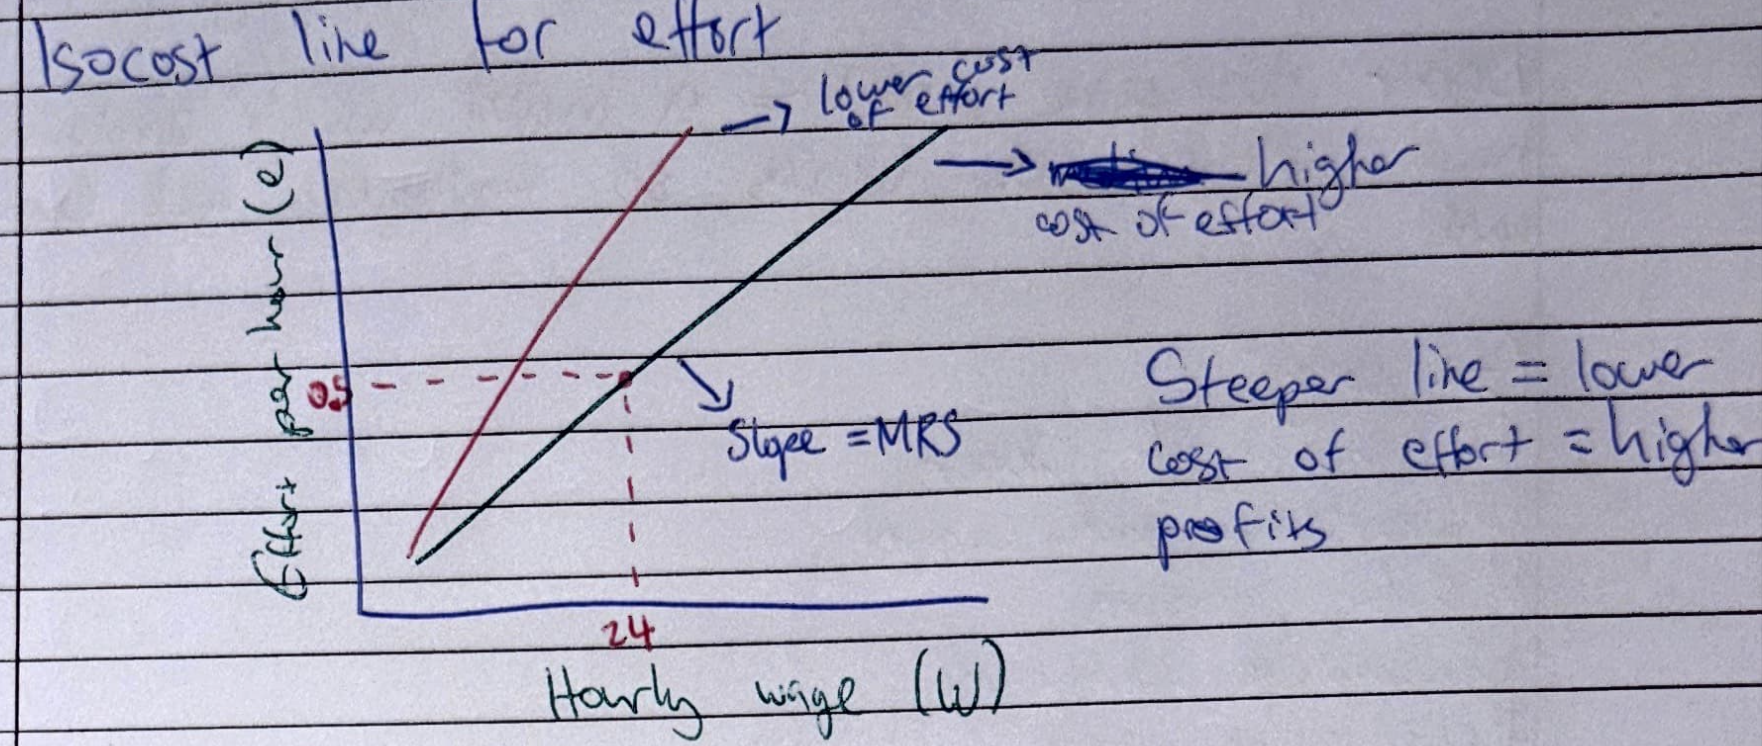 Isocost line for effort
→ lower cost
of effort
→ higher
cost of effort
Effort per hour (e)
0.5
Slope = MRS
Steeper line = lower
cost of effort = higher
profits
24
Hourly wage (W)